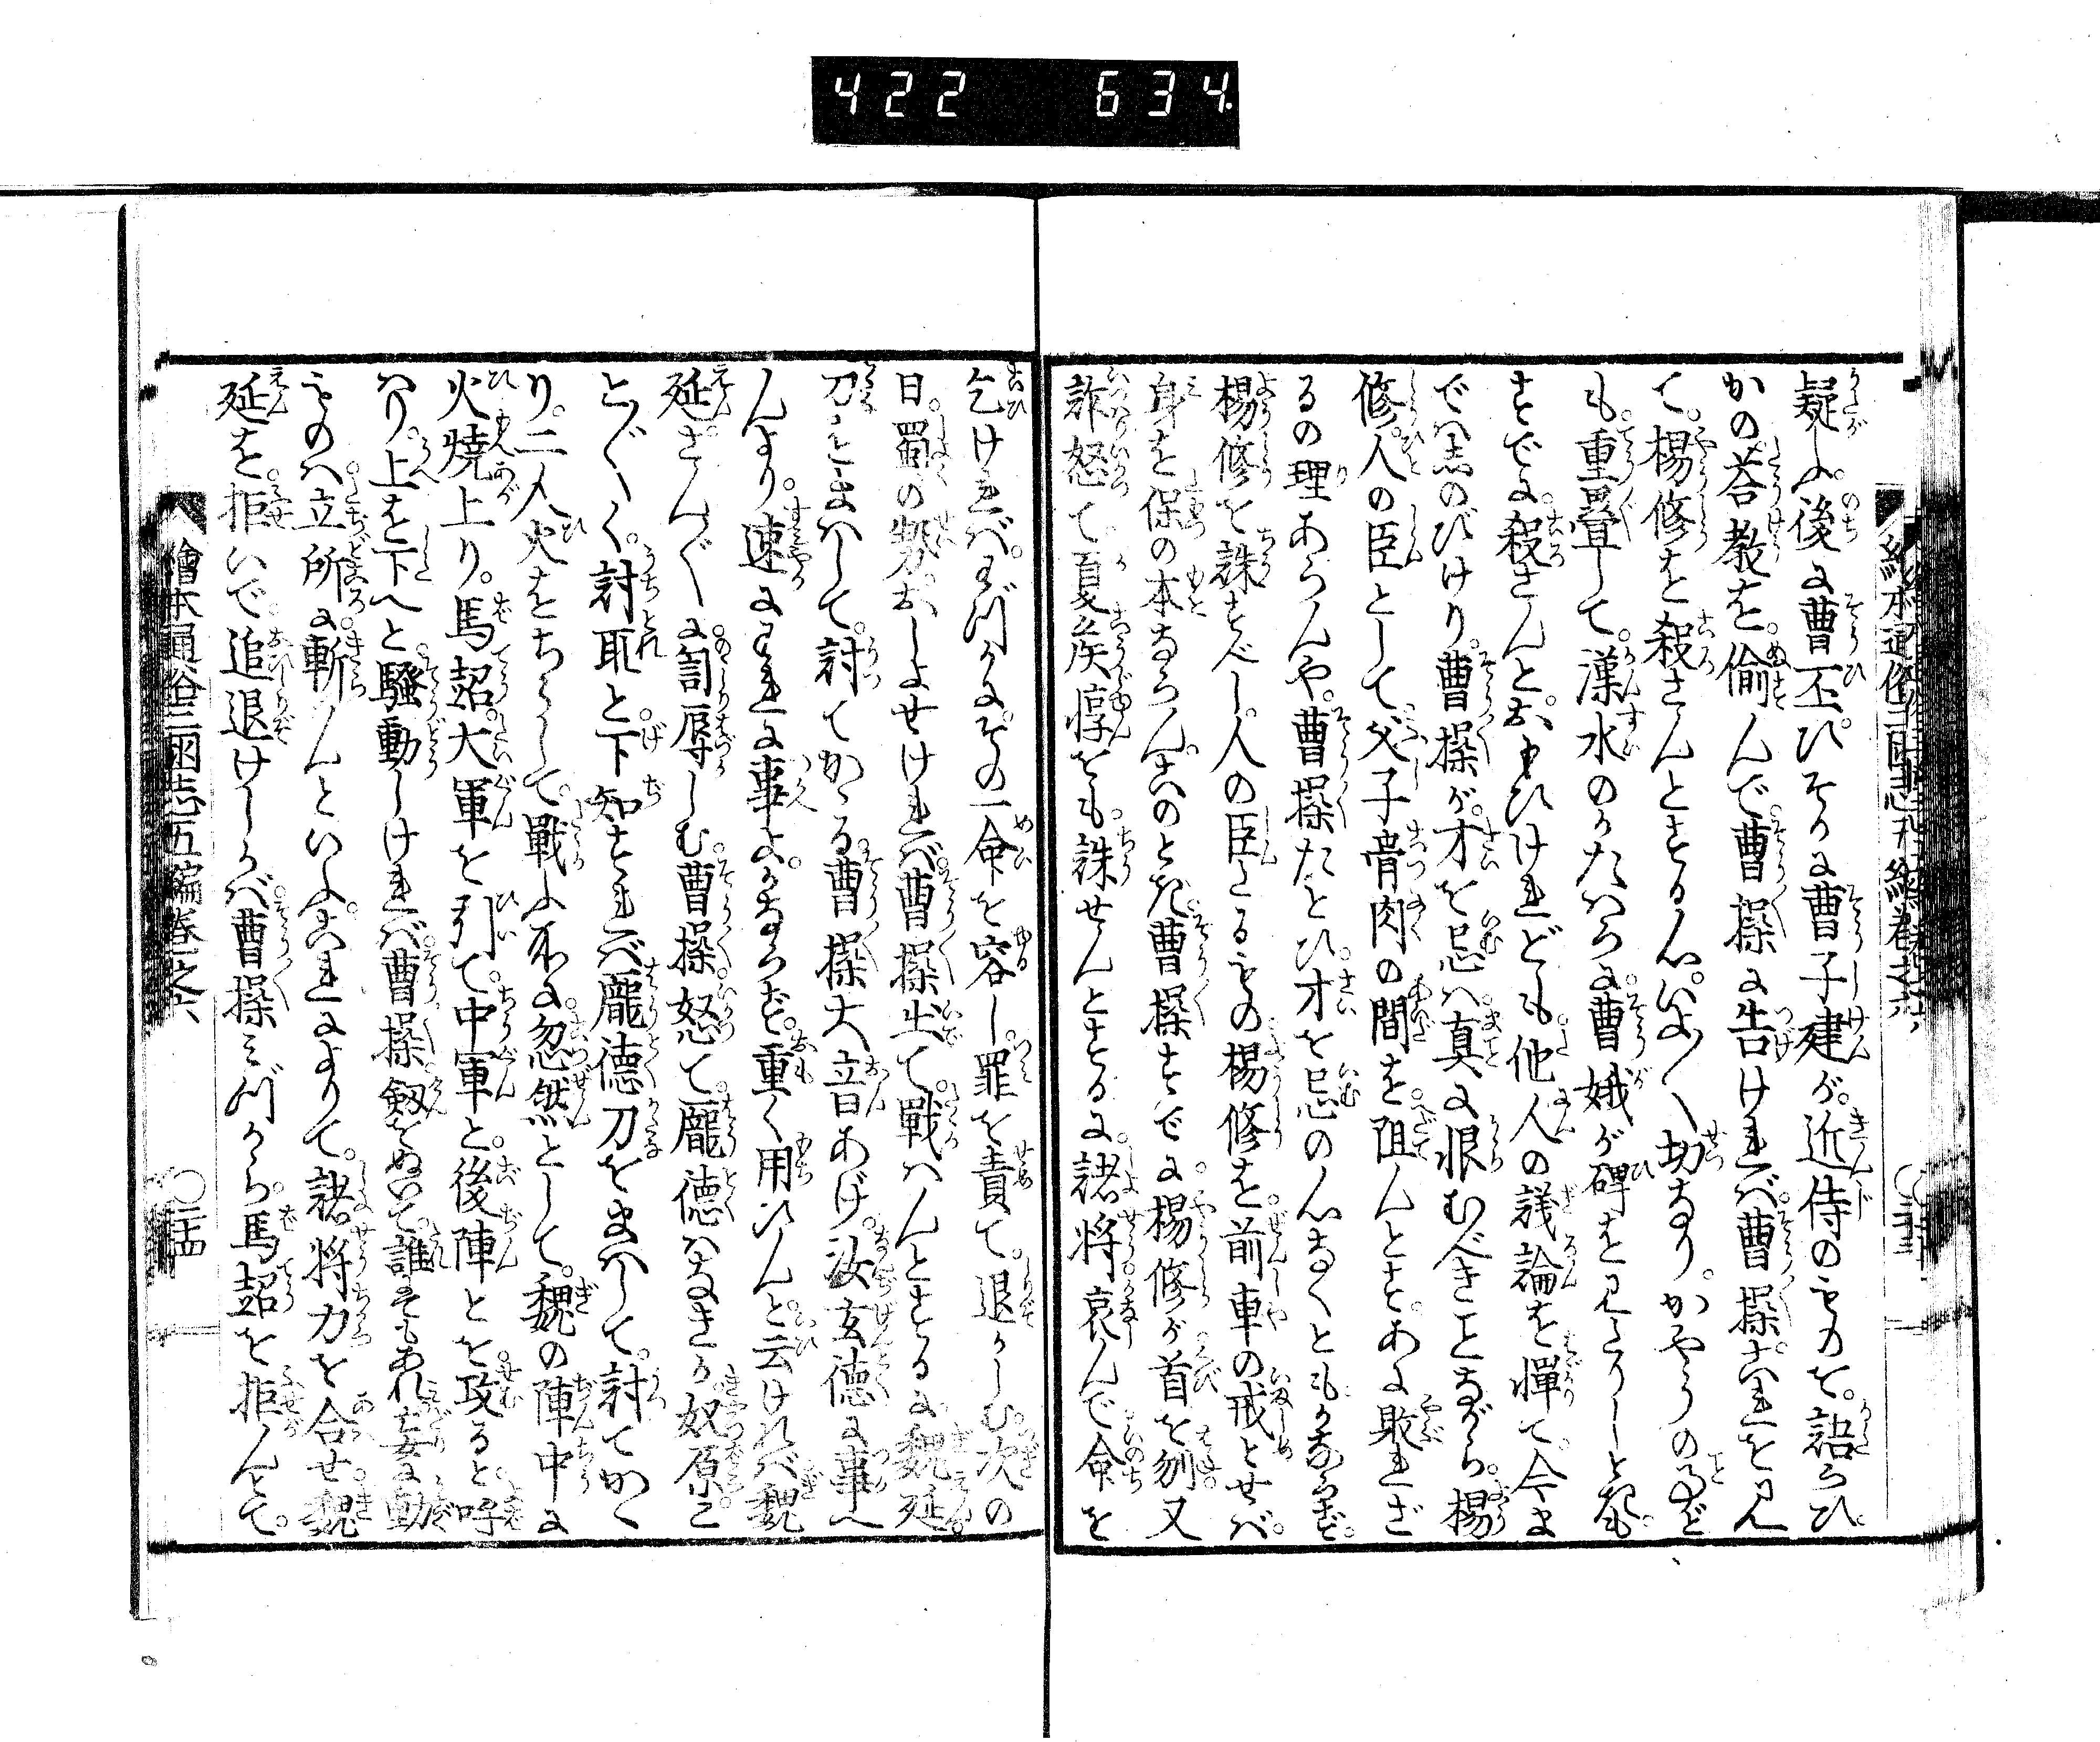 422 634
疑ふ。後に曹丕。ひそかに曹子建が。近侍のものを。語らひ。
かの荅教を。偷んで。曹操に告ければ。曹操。これを見
て。楊修を殺さんとする心。いよ〱切なり。かやうの事ど
も。重疊して。漢水のかたはらに曹娥が碑を見たりしとき
すでに。殺さんと。おもひけれども他人の議論を憚て。今ま
では忍のびけり。曹操が。才を忌へ。真に恨むべきことながら。楊
修。人の臣として。父子骨肉の間を。阻んとす。あに敗れざ
るの理あらんや。曹操たとひ。才を忌の心なくともかならず。
楊修を誅すべし。人の臣たるもの楊修を。前車の戒とせば。
身を保の本ならん。このとき曹操すでに。楊修が首を刎。又
詐怒て。夏矦惇をも。誅せんとするに。諸将。哀んで。命を
乞ければ。わづかにその一命を容し。罪を責て。退かしむ。次の
日。蜀の勢。おしよせければ。曹操出て。戰はんとするに。魏延。
刀をまはして。討てかゝる。曹操大音あげ。汝玄德に事へ
んより。速にわれに事よ。かならず。重く用ひんと。云ければ。魏
延。さん〲に罵辱しむ曹操。怒て。龐德はなきか奴原こ
と〲く。討取と。下知すれば。龐德刀をまはして。討てかゝ
り。二人火をちらして。戰ふ所に。忽然として。魏の陣中に
火燒上り。馬超。大軍を引て。中軍と。後陣とを。攻ると呼
はり。上を下へと騒動しければ。曹操。劔をぬいて。誰にもあれ妄に動
ものは立所に。斬んといふ。これによりて。諸将力を合せ。魏
延を拒いで。追退けしかば。曹操みづから。馬超を拒んとて。
繪本通俗三國志五編卷之六
〇二十四